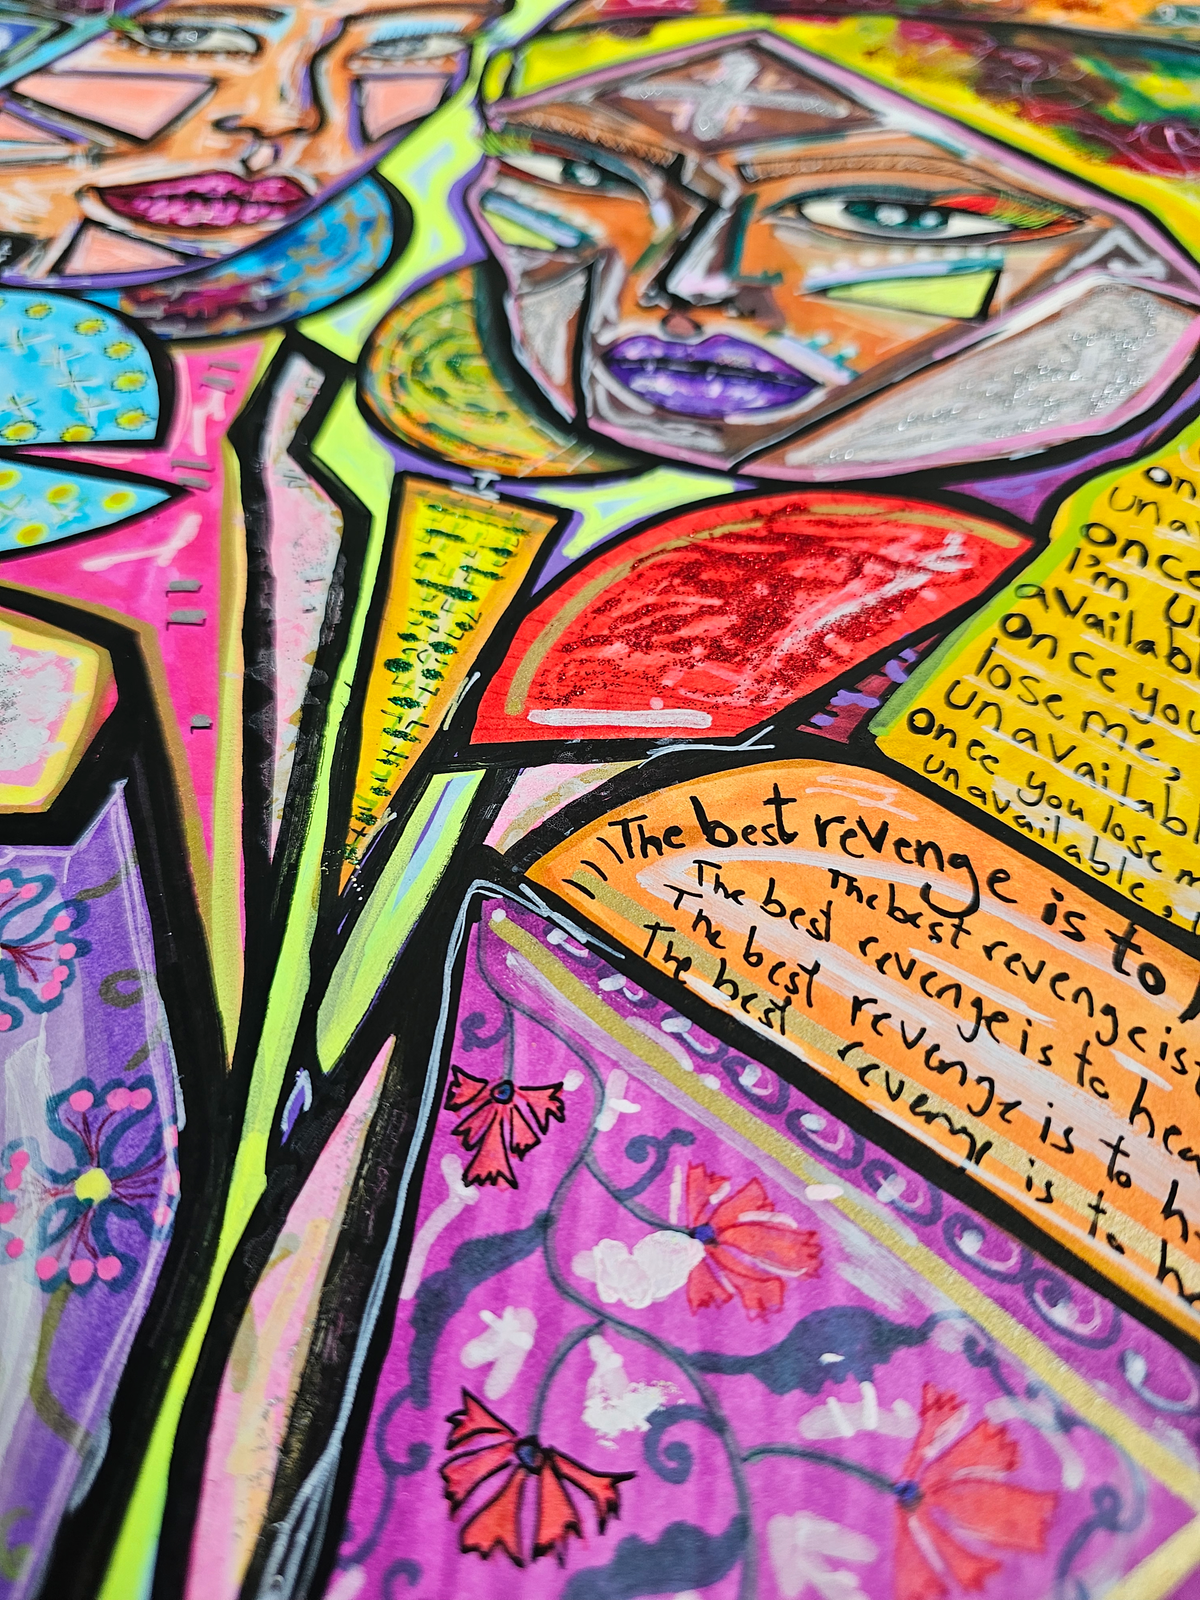 on
una
once
I'm u
availabl
once you
lose me,
unavailabl
once you lose m
unavailable,
The best revenge is to
The best revenge is t
The best revenge is to hea
The best revenge is to h
The best revenge is to h